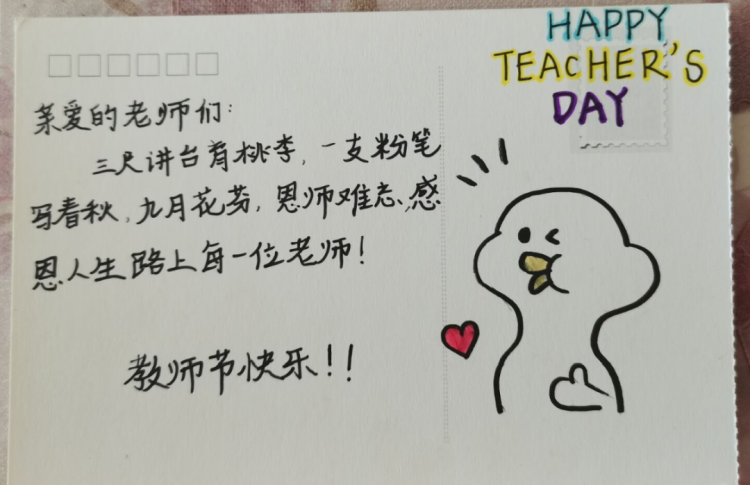 HAPPY
TEACHER'S
DAY
亲爱的老师们:
三尺讲台育桃李,一支粉笔
写春秋,九月花芬,恩师难忘,感
恩人生路上每一位老师!
教师节快乐!!